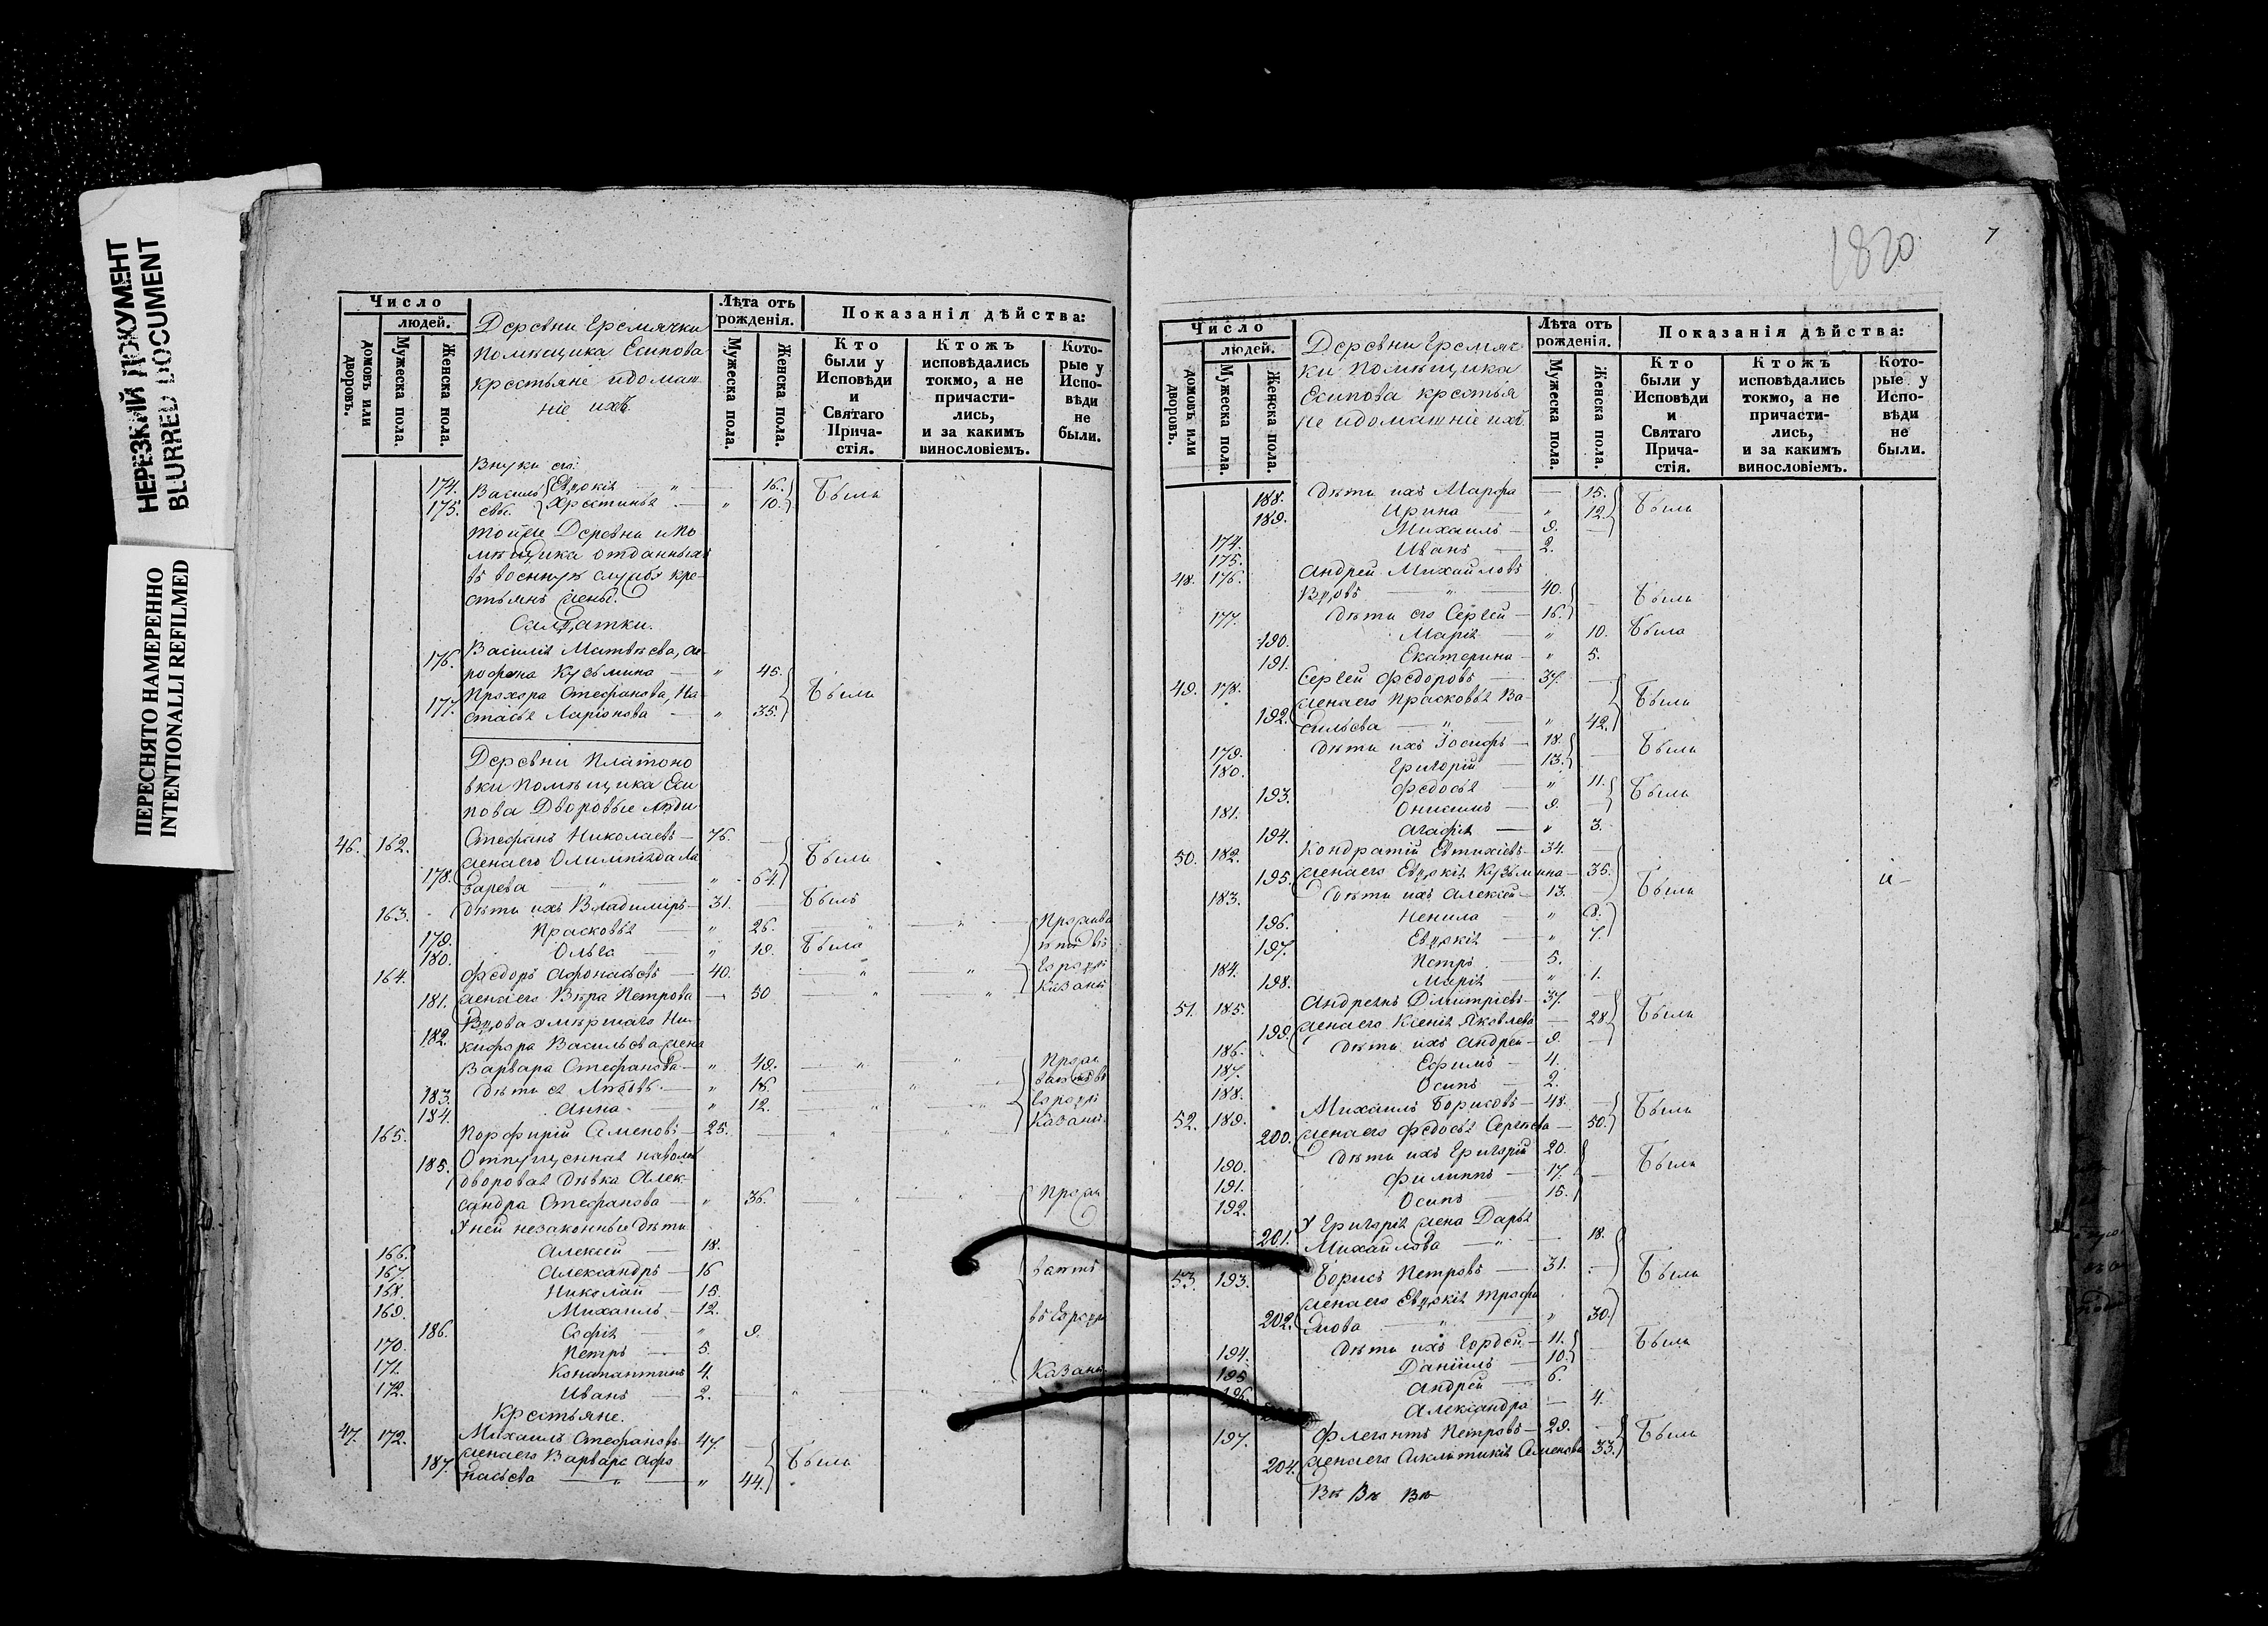 НЕРЕЗКИЙ ДОКУМЕНТ
BLURRED DOCUMENT
ПЕРЕСНЯТО НАМЕРЕННО
INTENTIONALLI REFILMED
Число
людей.
домовъ или дворовъ.
Мужеска пола.
Женска пола.
Деревни Еремячки
помѣщика Есипова
крестьяне и домаш-
ніе ихъ
Лѣта отъ рожденія.
Мужеска пола.
Женска пола.
Показанія дѣйства:
Кто были у Исповѣди и Святаго Прича-стія.
Ктожъ исповѣдались токмо, а не причасти-лись, и за какимъ винословіемъ.
Кото-рые у Испо-вѣди не были.
Внуки его
174. Евдокія — " — 16. Были
175. Христинья — " 10.
тойже Деревни и по
мѣщика отданныхъ
въ военную службу кре-
стьянъ жены.
Салдатки.
176. Василія Матвѣева,
Кузьмина — " 45. Были
177. Прохора Стефанова, На
стасья Ларіонова — " 35.
Деревни Платоно
вки помѣщика Еси
пова Дворовые люди
46. 162. Стефанъ Николаевъ — 76. — Были
178. жена его Олимпіада Ла
зарева — " — " 54.
163. дѣти ихъ Владиміръ — 31. — Былъ
179. Прасковья — " 26.
180. Ольга — " 19. Была
Прожива
въ
городѣ
Казани
164. Федоръ Афонасьевъ — 40.
181. жена его Вѣра Петрова — 50
182. Вдова умершаго Ни-
кифора Васильева жена
Варвара Стефанова — " 49.
183. дѣти ея Любовь — " 16.
184. Анна — " 12.
Прожи
ваютъ въ
городѣ
Казани.
165. Порфирій Семеновъ — 25.
185. Отпущенная на волю
дворовая дѣвка Алек-
сандра Стефанова — " 36.
У ней незаконные дѣти
166. Алексѣй — 18.
167. Александръ — 16
168. Николай — 15.
169. Михаилъ — 12.
186. Софія — " 9.
170. Петръ — 5.
171. Константинъ 4.
172. Иванъ — 2.
Прожи
ваютъ
въ городѣ
Казани.
Крестьяне.
47. 172. Михаилъ Стефановъ — 47. — Были
187. жена его Варвара Афо
насьева — " — " 44.
1820
7
Число
людей.
домовъ или дворовъ.
Мужеска пола.
Женска пола.
Деревни Еремяч
ки помѣщика
Есипова крестья
не и домашніе ихъ
Лѣта отъ рожденія.
Мужеска пола.
Женска пола.
Показанія дѣйства:
Кто были у Исповѣди и Святаго Прича-стія.
Ктожъ исповѣдались токмо, а не причасти-лись, и за какимъ винословіемъ.
Кото-рые у Испо-вѣди не были.
188. Дѣти ихъ Марфа — 15. Были
189. Ирина — " 12.
174. Михаилъ — 9. —
175. Иванъ — 2.
48. 176. Андрей Михайловъ
Вдовъ — " — 40. Были
177. дѣти его Сергей — 16.
190. Марія — " 10. Была
191. Екатерина — " 5.
49. 178. Сергей Федоровъ — 37. — Были
192. жена его Прасковья Ва-
сильева — " — " 42.
179. дѣти ихъ Іосифъ — 18. Были
180. Григорій — 13.
193. Федосья — " 11. Были
181. Онисимъ — 9. —
194. Агафія — " 3.
50. 182. Кондратій Евтихіевъ — 34. —
195. жена его Евдокія Кузьмина — 35. Были
183. дѣти ихъ Алексѣй — 13. —
196. Ненила — " 8.
197. Евдокія — " 7.
184. Петръ — 5.
198. Марія — " 1.
51. 185. Андреянъ Димитріевъ — 37. — Были
199. жена его Ксенія Яковлева — 28.
186. дѣти ихъ Андрей — 9. —
187. Ефимъ — 4.
188. Осипъ — 2.
52. 189. Михаилъ Борисовъ — 48. — Были
200. жена его Федосья Сергѣева — 50.
190. дѣти ихъ Григорій 20. Были
191. Филиппъ — 17. —
192. Осипъ — 15.
201. У Григорія жена Дарья
Михайлова — " — 18.
53. 193. Борисъ Петровъ — 31. Были
202. жена его Евдокія Трофи
мова — " — " 30.
194. дѣти ихъ Гордей — 11. — Были
195 Даніилъ — 10.
196. Андрей — 6.
Александра — 4.
197. Флегонтъ Петровъ — 29. — Были
204. жена его Семенова 33.
Вѣ Вѣ Вѣ